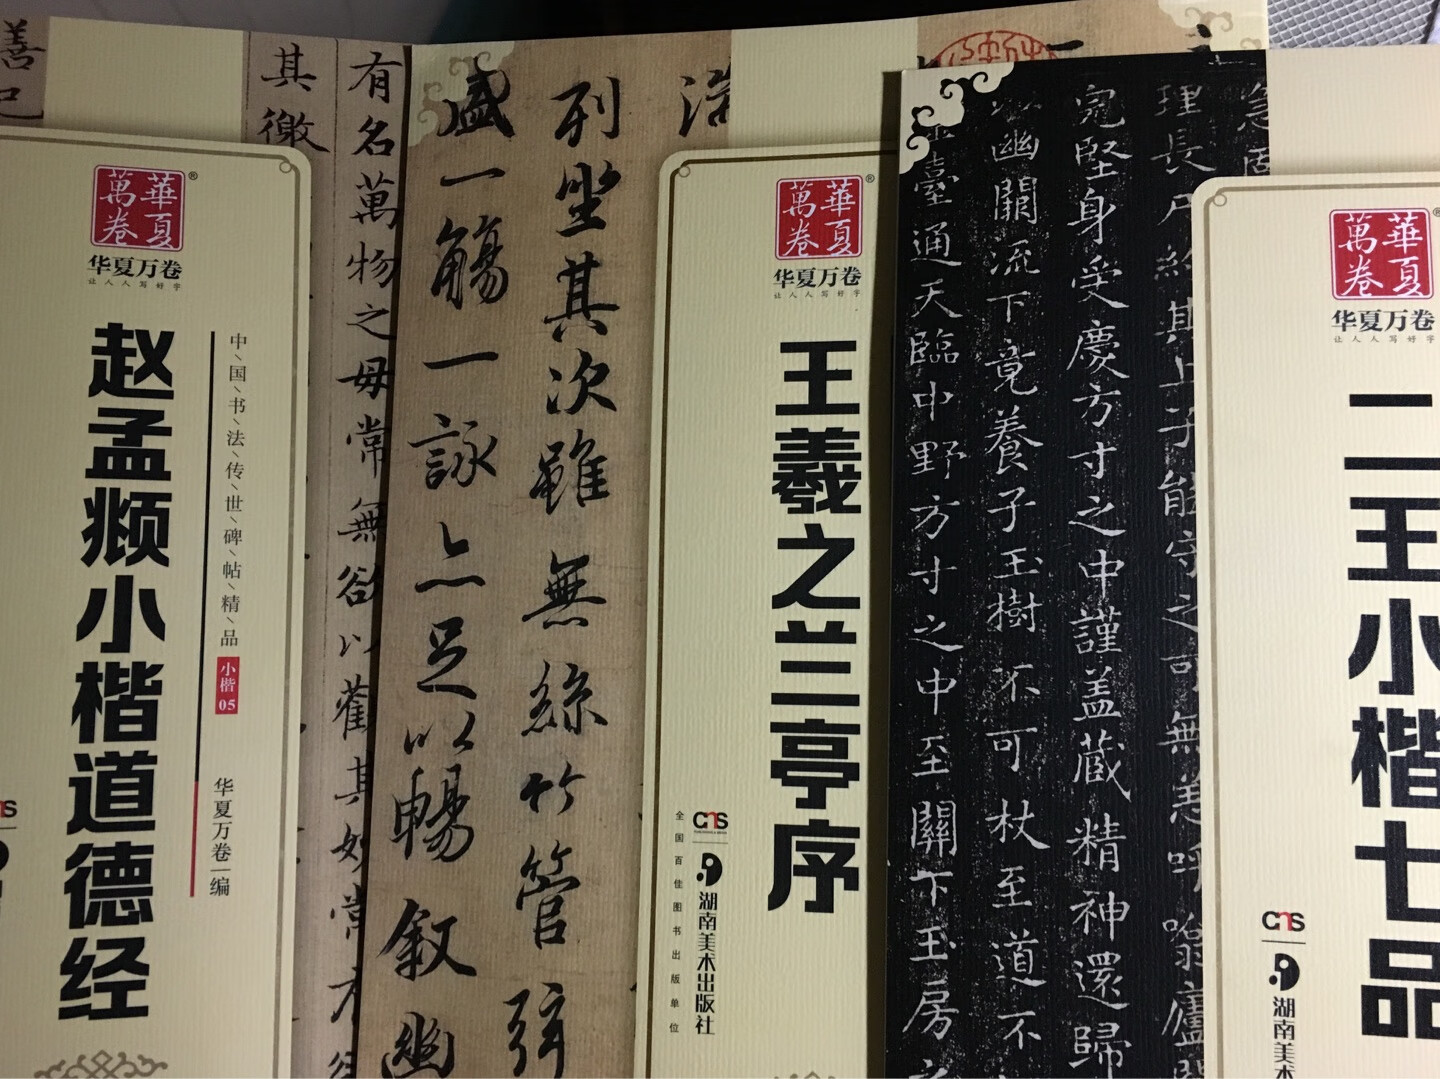 善
其徼
有名萬物之母常無欲以觀其妙常有
華夏萬卷
®
华夏万卷
让人人写好字
赵孟頫小楷道德经
中国书法传世碑帖精品
小楷05
华夏万卷 编
列坐其次雖無絲竹管弦
盛一觴一詠亦足以暢叙幽
華夏萬卷
®
华夏万卷
让人人写好字
王羲之兰亭序
CNS
湖南美术出版社
全国百佳图书出版单位
急固
理長尺約其上子能守之可無恙呼噏廬間
宛堅身受慶方寸之中謹盖蔵精神還歸
幽闕流下竟養子玉樹不可杖至道不
臺通天臨中野方寸之中至關下玉房之
華夏萬卷
®
华夏万卷
让人人写好字
二王小楷七品
CNS
湖南美术